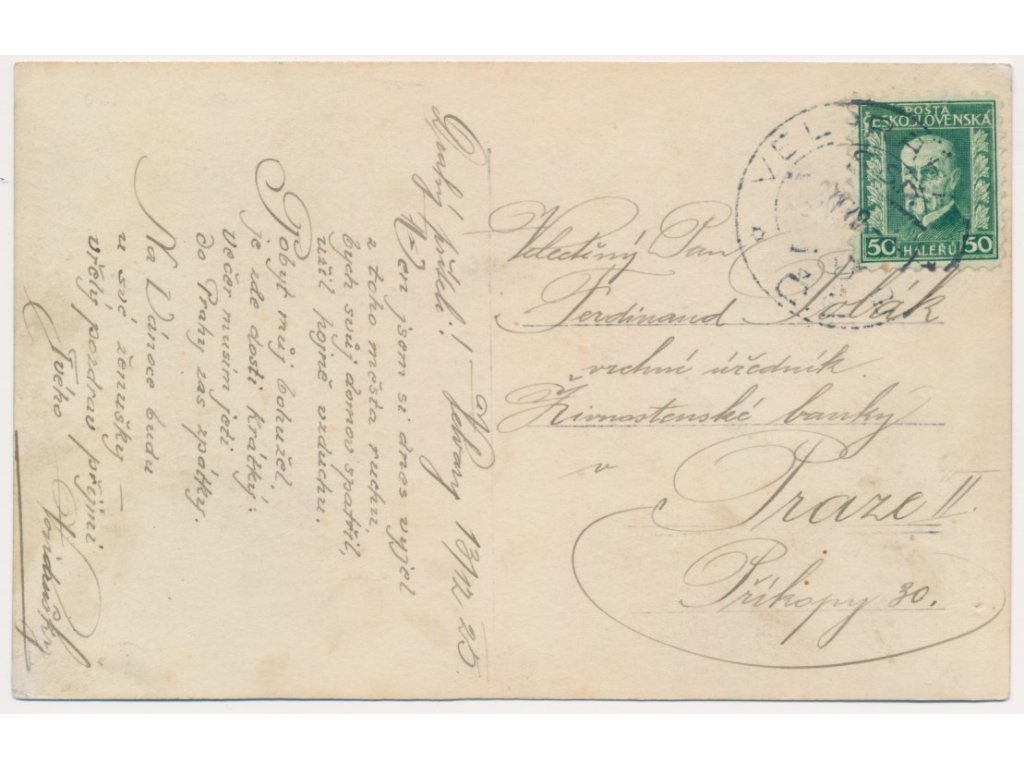 Drahý příteli! Velvary 13/12 25
Ven jsem si dnes vyjel
z toho města ruchu,
bych svůj domov spatřil,
užil pojně vzduchu.
Pobyt můj bohužel,
je zde dosti krátký:
večer musím jeti
do Prahy zas zpátky.
Na Vánoce budu
u své ženušky –
vřelý pozdrav přijmi
Tvého
POSTA
ČESKOSLOVENSKÁ
50 HALÉŘŮ 50
VEL
Velectěný Pan
Ferdinand Polák
vrchní úředník
Živnostenské banky
v
Praze II.
Příkopy 30.